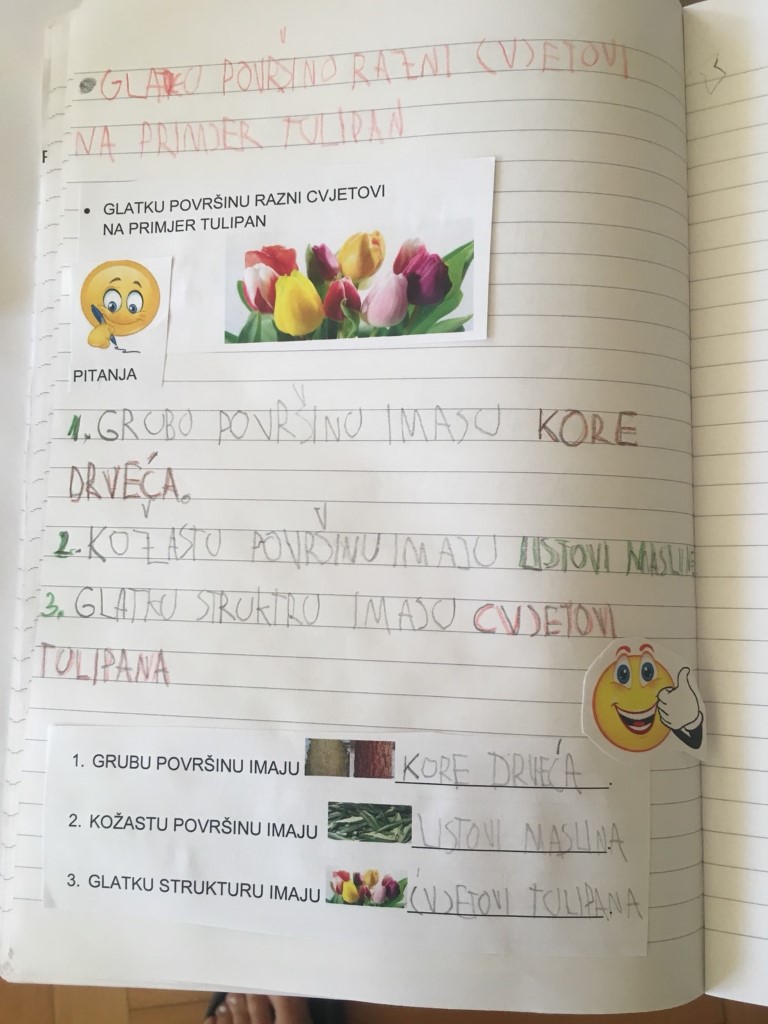 • GLATKU POVRŠINU RAZNI CVJETOVI
NA PRIMJER TULIPAN
• GLATKU POVRŠINU RAZNI CVJETOVI
NA PRIMJER TULIPAN
PITANJA
1. GRUBU POVRŠINU IMAJU KORE
DRVEĆA.
2. KOŽASTU POVRŠINU IMAJU LISTOVI MASLINA
3. GLATKU STRUKTRU IMAJU CVJETOVI
TULIPANA
1. GRUBU POVRŠINU IMAJU KORE DRVEĆA.
2. KOŽASTU POVRŠINU IMAJU LISTOVI MASLINA.
3. GLATKU STRUKTURU IMAJU CVJETOVI TULIPANA